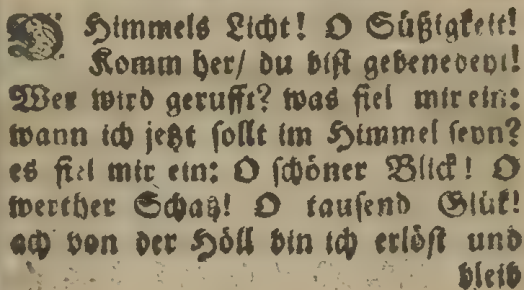 O Himmels Licht! O Süßigkeit!
Komm her/ du bist gebenedeyt!
Wer wird gerufft? was fiel mir ein:
wann ich jetzt sollt im Himmel seyn?
es fiel mir ein: O schöner Blick! O
werther Schatz! O tausend Glük!
ach von der Höll bin ich erlöst und
bleib